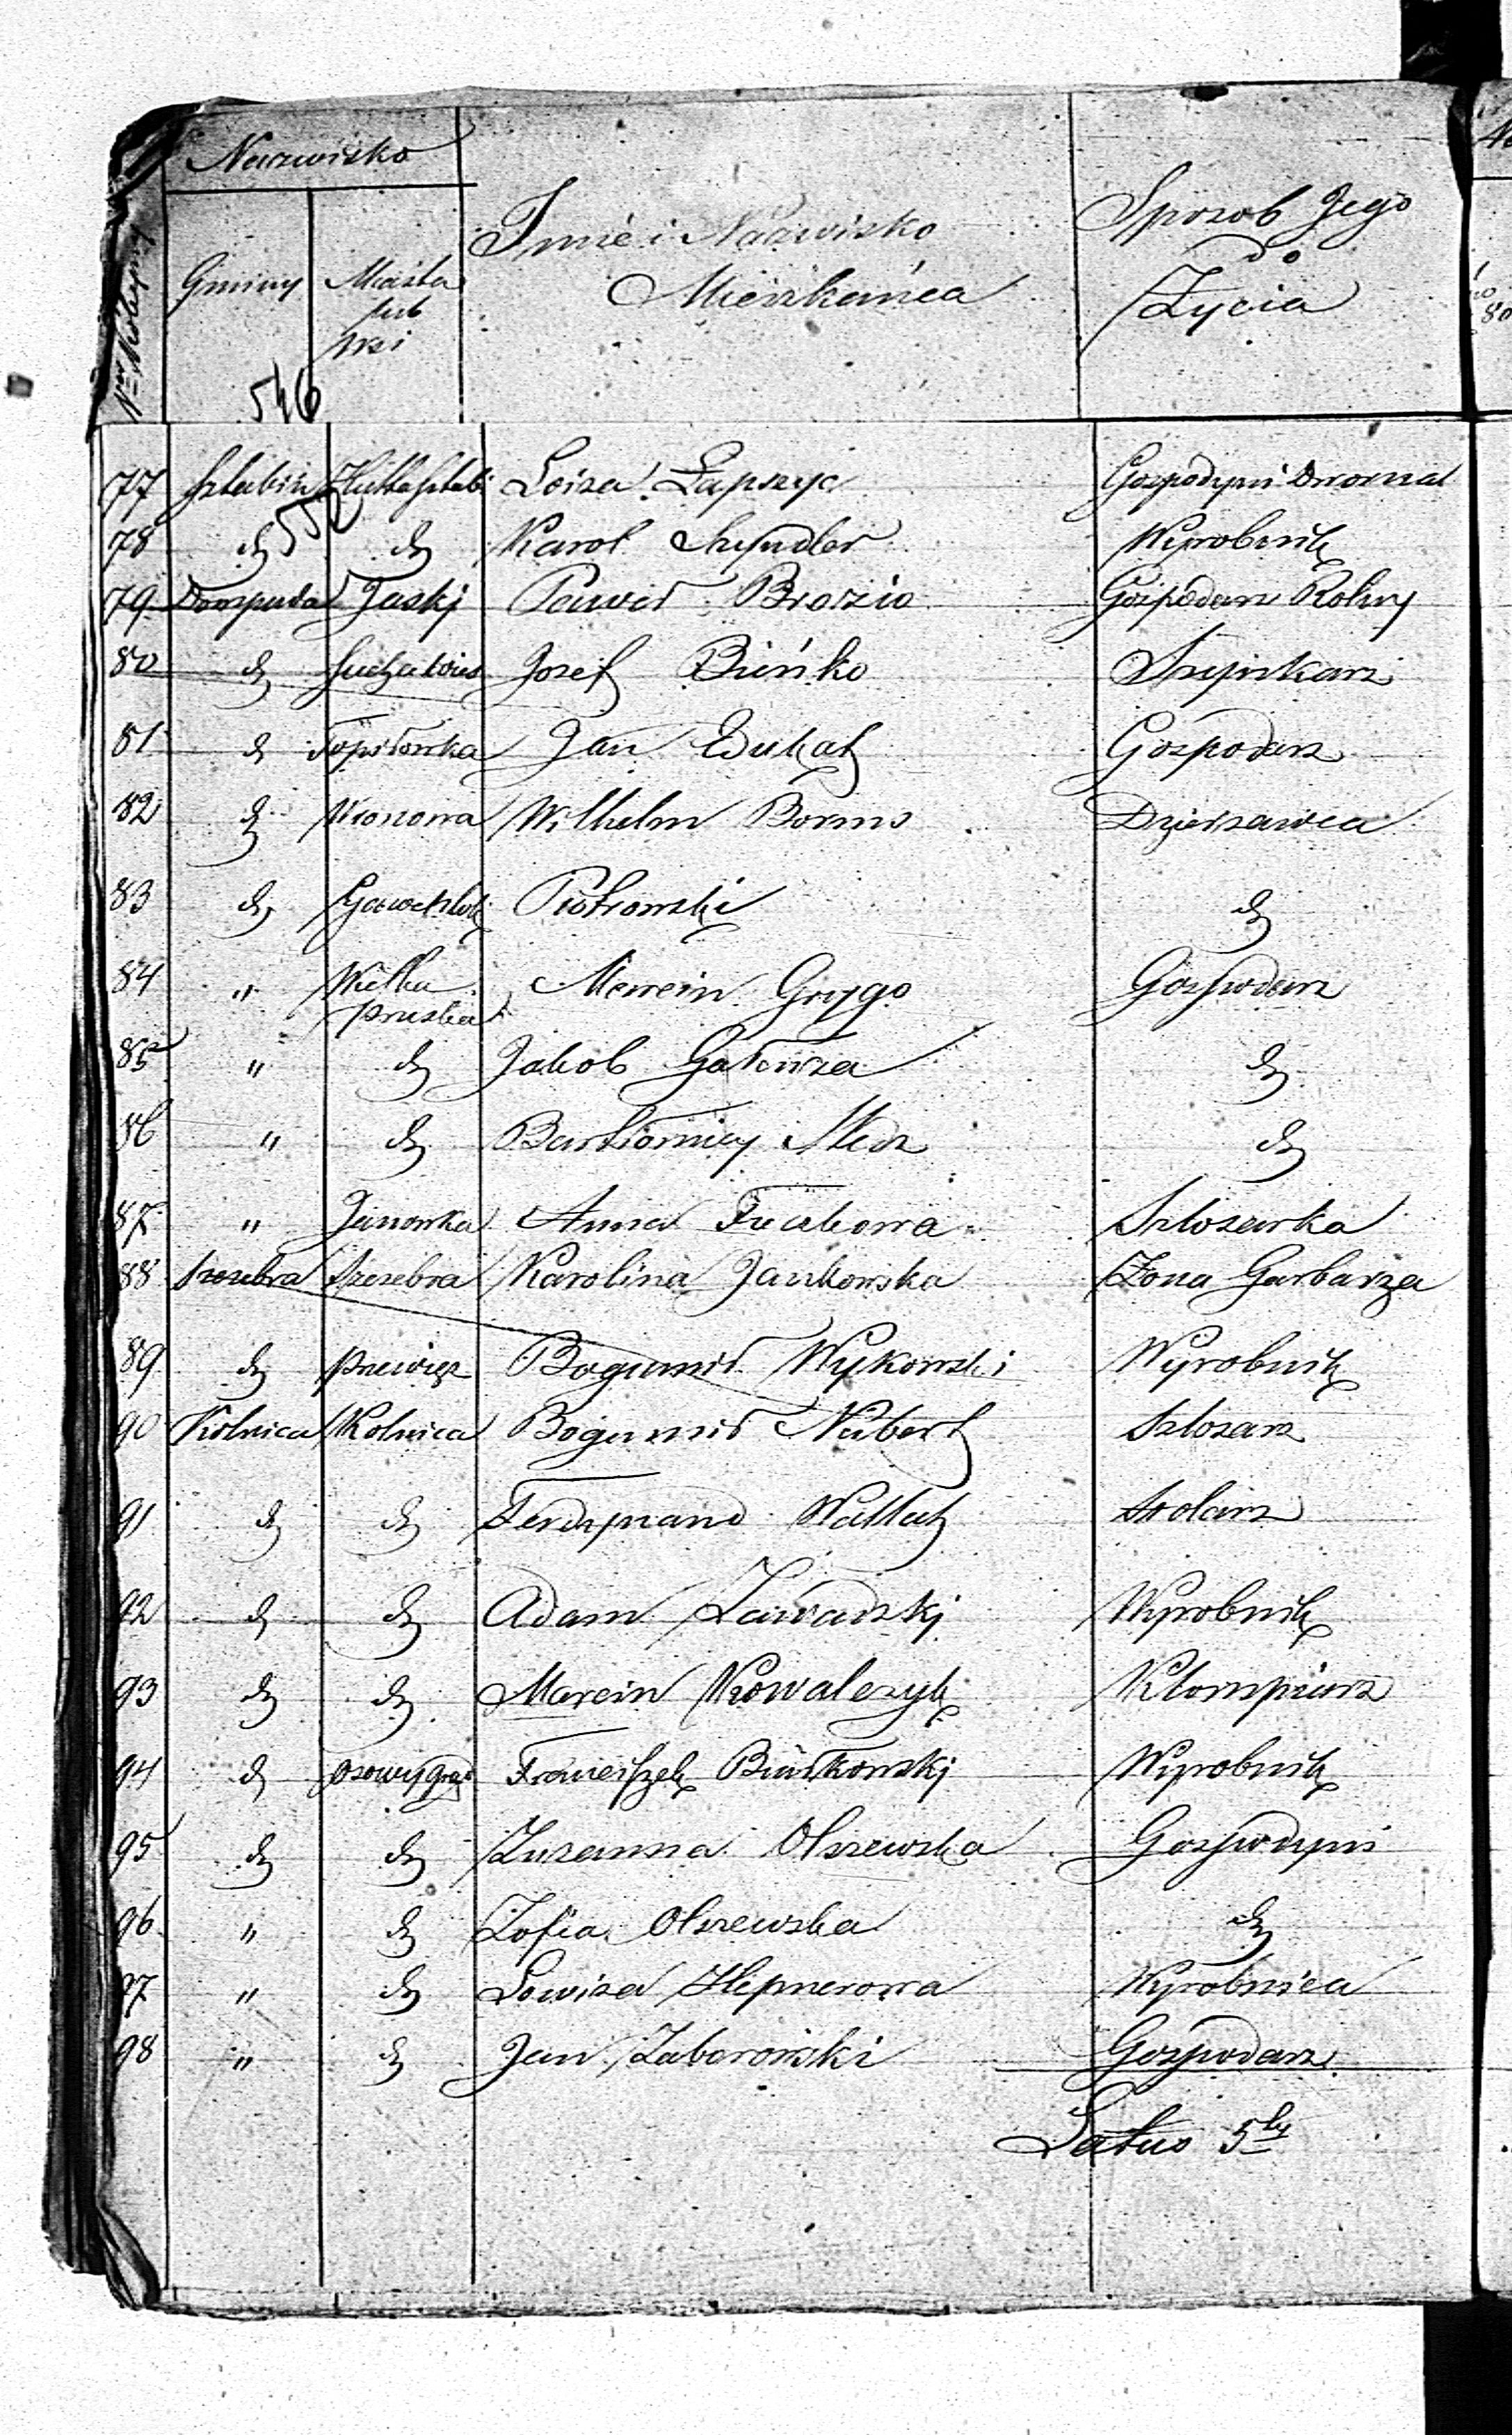 Nazwisko
Nro Kolejny
Gminy
Miasta
lub
wsi
Imie i Nazwisko
Mieszkańca
Sposob Jego
do
Życia
546
77 Sztabin Huttasztabi Loiza Łapszyc Gospodyni Dworna
78 dto dto Karol Szyndler Wyrobnik
79 Dowspuda Jaskj Paweł Brozio Gospodarz Rolny
80 dto Suchawies Josef Bińko Szynkarz
81 dto Topiłowka Jan Edukat Gospodarz
82 dto Wronowa Wilhelm Borms Dzierzawca
83 dto Piotrowski dto
84 " Wolka Marcin Grygo Gospodarz
pruska
85 " dto Jakob dto
86 " dto Bartłomiey dto
87 " Janowka Anna Szlosarka
88 Szczebra Szczebra Karolina Jankowska Zona Garbarza
89 dto przewięz Bogumił Wykowski Wyrobnik
90 Kolnica Kolnica Bogumił Nubert Szlosarz
91 dto dto Ferdynand Wallat Stolarz
92 dto dto Adam Zawadzkj Wyrobnik
93 dto dto Marcin Kowalczyk Klompiarz
94 dto Osowygrąd Franciszek Białkowskj Wyrobnik
95 dto dto Zuzanna Olszewska Gospodyni
96 " dto Zofia Olszewska dto
97 " dto Lowiza Hepnerowa Wyrobnica
98 " dto Jan Zaborowski Gospodarz
Latus 5ty